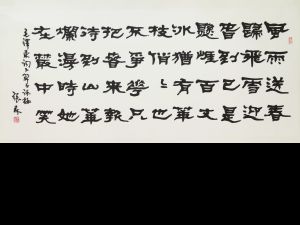 風雨送春
歸飛雪迎
春到已是
懸崖百丈
冰猶有華
枝俏々也
不爭春只
把春來報
待到山華
爛漫時她
在叢中笑
毛澤東詞卜算子詠梅